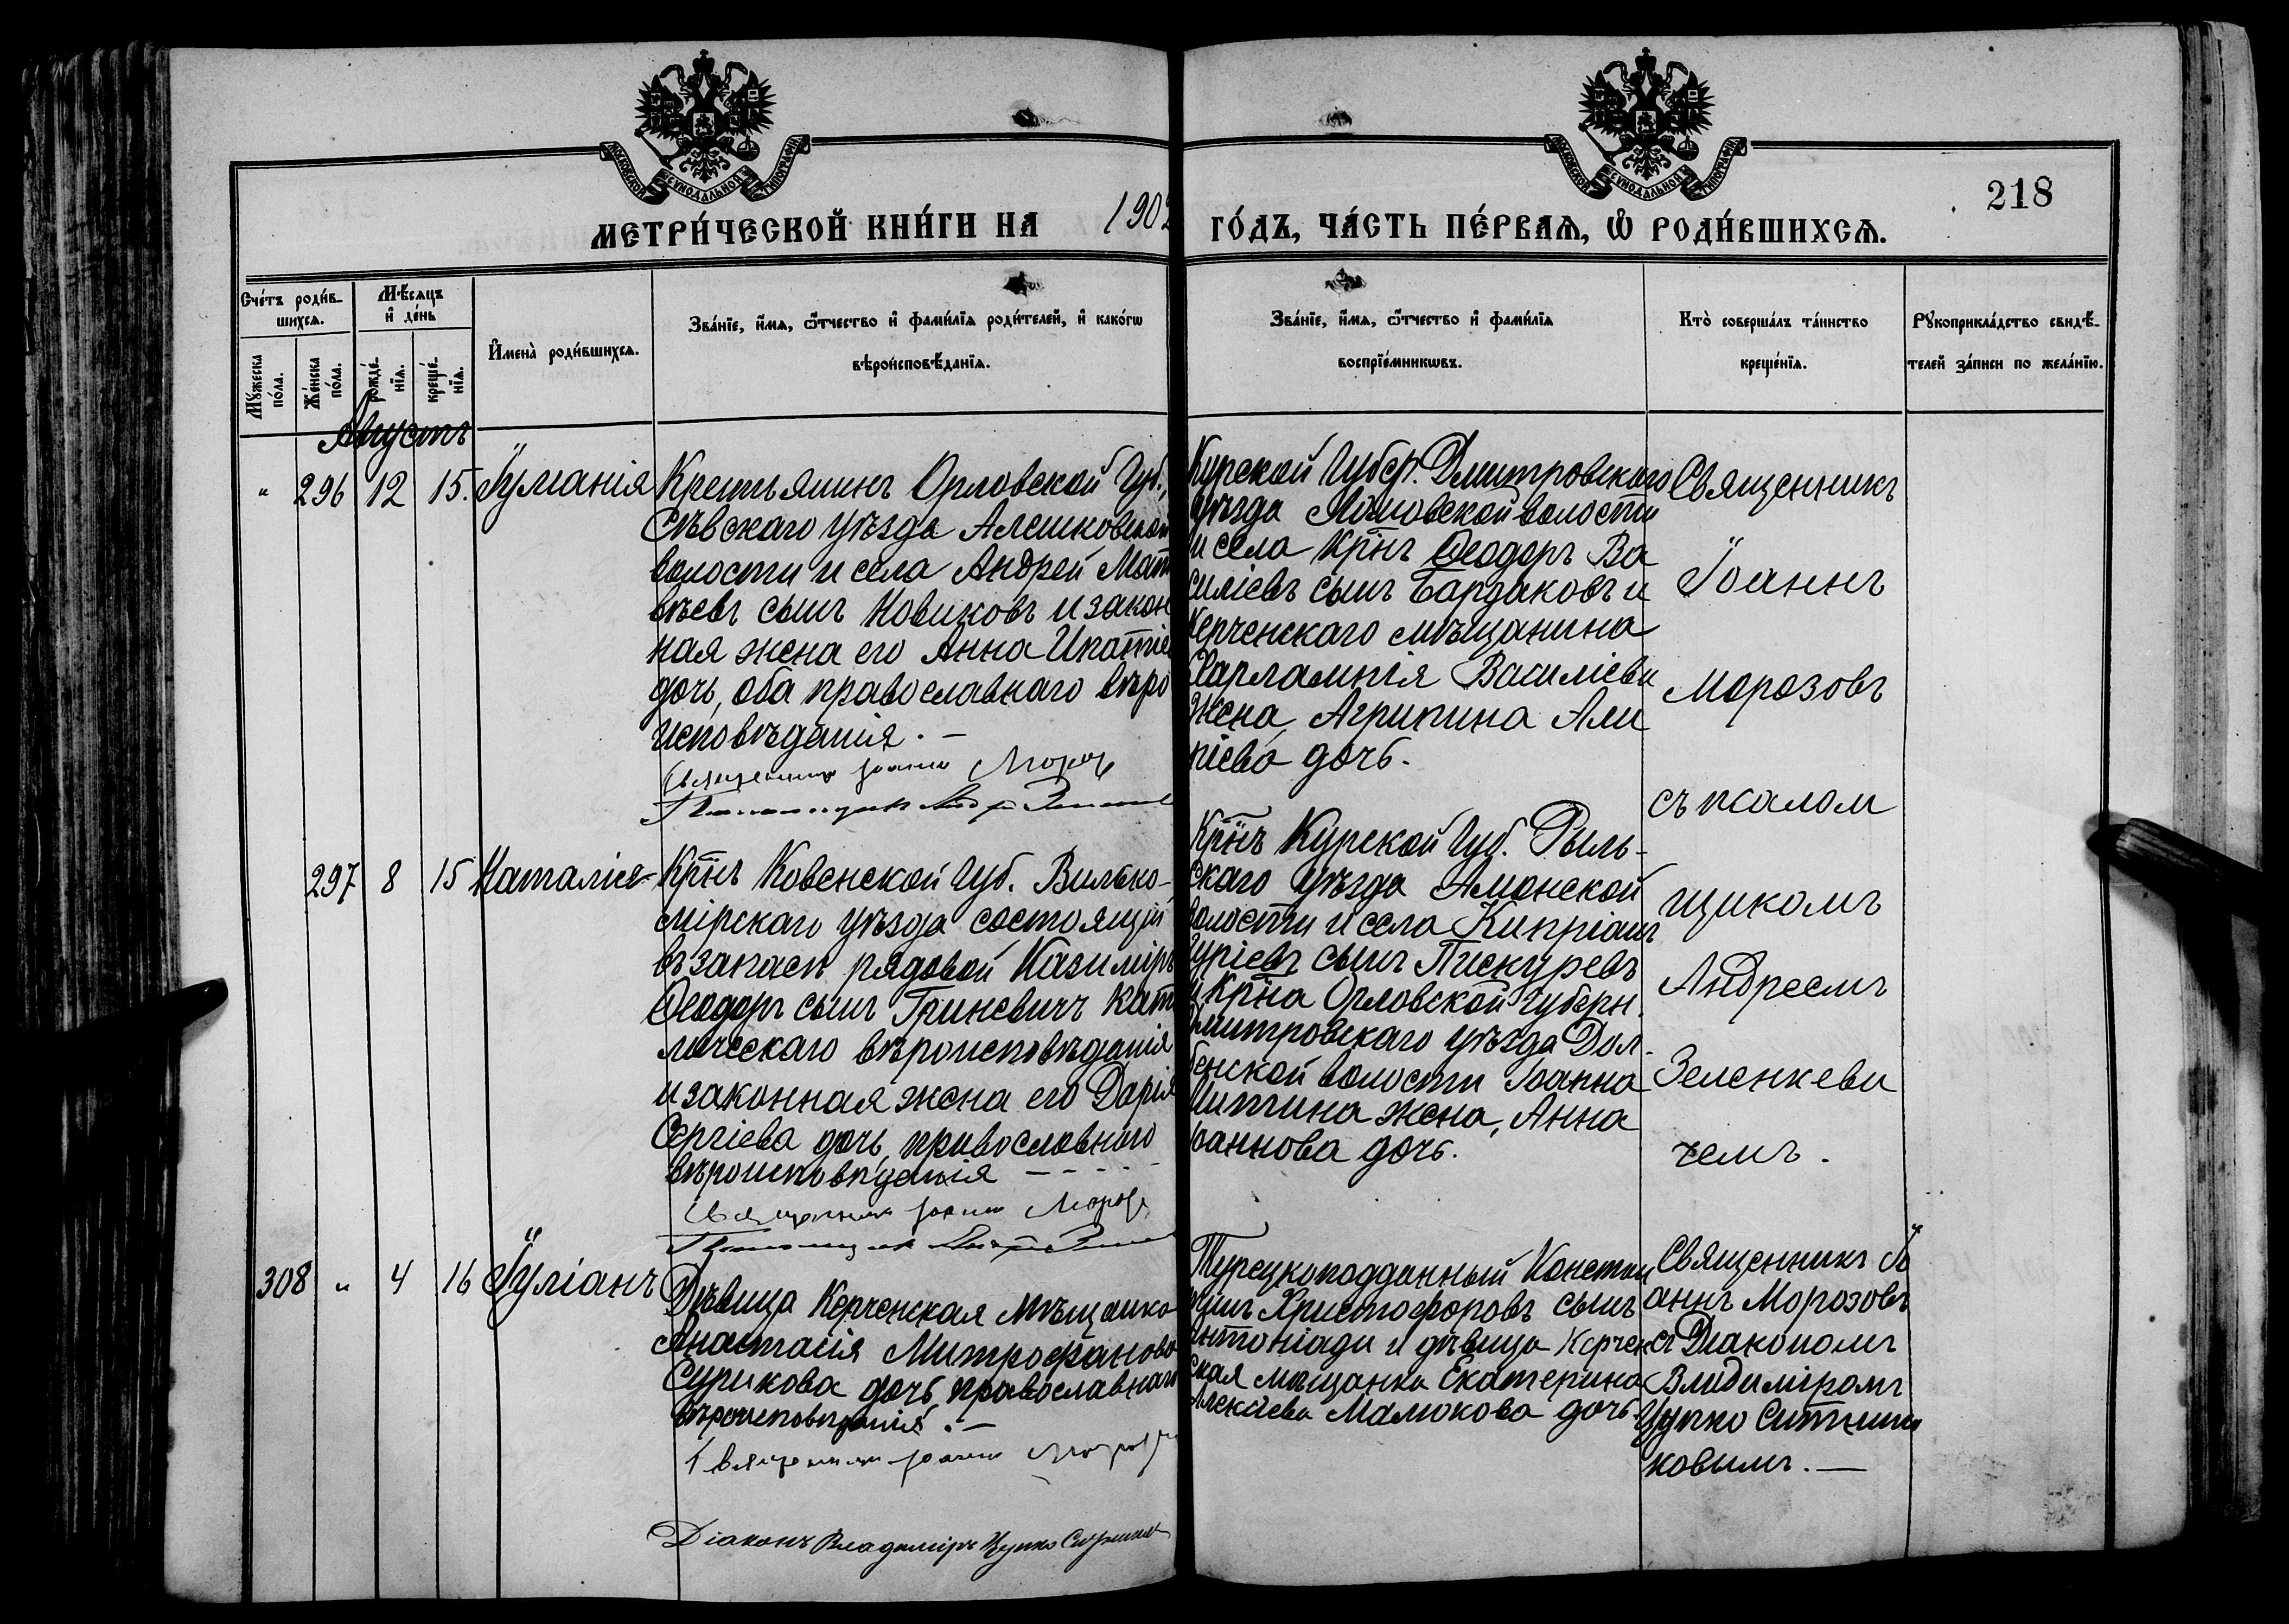 МОСКОВСКОЙ СѴНОДАЛЬНОЙ ТИПОГРАФІИ
МОСКОВСКОЙ СѴНОДАЛЬНОЙ ТИПОГРАФІИ
218
МЕТРИ́ЧЕСКОЙ КНИ́ГИ НА 1902 ГО́ДЪ, ЧА́СТЬ ПЕ́РВАѦ, Ѡ РОДИ́ВШИХСѦ.
Сче́тъ роди́в-
шихсѧ.
Мꙋ́жеска по́ла.
Же́нска по́ла.
Мѣ́сѧцъ
и҆ де́нь
рожде́-
нїѧ.
креще́-
нїѧ.
И҆мена̀ роди́вшихсѧ.
Зва́нїе, и҆́мѧ, ѻ҆́тчество и҆ фами́лїѧ роди́телей, и҆ како́гѡ
вѣроисповѣ́данїѧ.
Зва́нїе, и҆́мѧ, ѻ҆́тчество и҆ фами́лїѧ
воспрїе́мникѡвъ.
Кто̀ соверша́лъ та́инство
креще́нїѧ.
Рꙋкоприкла́дство свидѣ́-
телей за́писи по жела́нїю.
Августъ
" 296 12 15. Іуліанія
Крестьянинъ Орловской Губ.,
Сѣвскаго уѣзда Алешковской
волости и села Андрей Мат
вѣевъ сынъ Новиковъ и закон
ная жена его Анна Ипатіе
дочь, оба православнаго вѣро
исповѣданія. —
Священникъ Іоаннъ Мороз
Псаломщикъ
Курской Губер. Дмитровскаго
уѣзда волости
и села Кр̃нъ Ѳеодоръ Ва
силіевъ сынъ Бардаковъ и
Керченскаго мѣщанина
Харлампія Василіева
жена, Агрипина Али
піева дочь.
Священникъ
Іоаннъ
Морозовъ
съ псалом
щикомъ
Андреемъ
Зеленкеви
чемъ.
297 8 15 Наталія
Кр̃нъ Ковенской Губ. Вилько-
мірскаго уѣзда состоящій
въ запасѣ рядовой Казиміръ
Ѳеодоръ сынъ Гриневичъ като
лическаго вѣроисповѣданія
и законная жена его Дарія
Сергіева дочь, православнаго
вѣроисповѣданія
Священникъ Іоаннъ Мороз
Псаломщикъ
Кр̃нъ Курской Губ. Рыль-
скаго уѣзда Амонской
волости и села Кипріанъ
Гуріевъ сынъ Пискуревъ
и Кр̃на Орловской Губерн.
Дмитровскаго уѣзда Дол-
бенской волости Іоанна
Митина жена, Анна
Іоаннова дочь.
308 " 4 16 Іуліанъ
Дѣвица Керченская мѣщанка
Анастасія Митрофанова
Сурикова дочь, православнаго
вѣроисповѣданія. —
Священникъ Іоаннъ Мороз
Діаконъ Владиміръ Цупко Ситников
Турецкоподданный Констан
тинъ Христофоровъ сынъ
Антоніади и дѣвица Керчен
ская мѣщанка Екатерина
Алексіева Малюкова дочь.
Священникъ Іо
аннъ Морозовъ
съ Діакономъ
Владиміромъ
Цупко Ситни
ковымъ. —